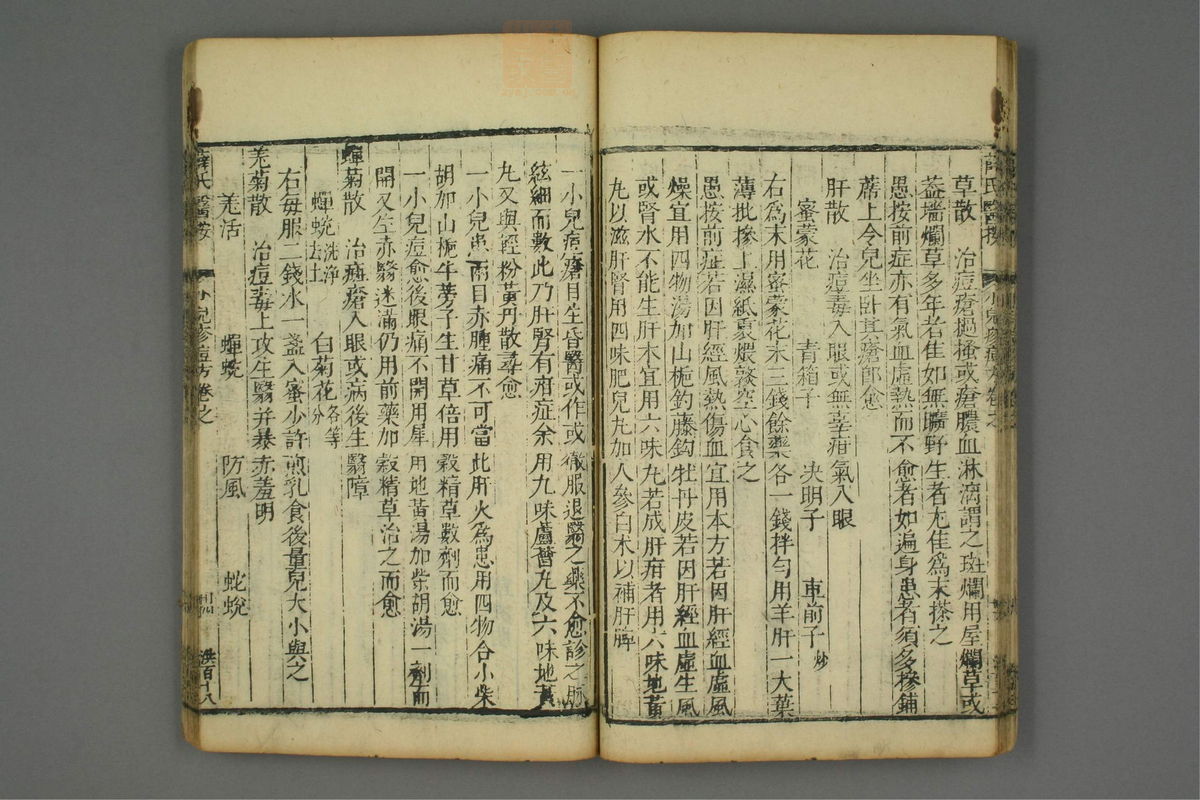 草散　治痘瘡撾搔或瘡膿血淋漓謂之斑爛用屋爛草或
葢墻爛草多年者佳如無曠野生者尤佳爲末搽之
愚按前症亦有氣血虛熱而不愈者如遍身患者須多摻鋪
蓆上令兒坐卧其瘡即愈
肝散　治痘毒入眼或無辜疳氣入眼
蜜蒙花　青箱子　决明子　車前子炒
右爲末用蜜蒙花末三錢餘藥各一錢拌勻用羊肝一大葉
薄批摻上濕紙裹煨熟空心食之
愚按前症若因肝經風熱傷血宜用本方若因肝經血虛風
燥宜用四物湯加山梔釣藤鈎牡丹皮若因肝經血虛生風
或腎水不能生肝木宜用六味丸若成肝疳者用六味地黃
丸以滋肝腎用四味肥兒丸加人參白术以補肝脾
一小兒痘瘡目生昏翳或作或徹服退翳之藥不愈診之脉
絃細而數此乃肝腎有疳症余用九味蘆薈丸及六味地黃
丸又與輕粉黃丹散尋愈
一小兒患兩目赤腫痛不可當此肝火爲患用四物合小柴
胡加山梔牛蒡子生甘草倍用穀精草數劑而愈
一小兒痘愈後眼痛不開用犀用地黃湯加柴胡湯一劑而
開又生赤翳迷滿仍用前藥加穀精草治之而愈
蟬菊散　治痘瘡入眼或病後生翳障
蟬蛻洗淨去土　白菊花各等分
右每服二錢水一盞入蜜少許煎乳食後量兒大小與之
羌菊散　治痘毒上攻生翳并暴赤羞明
羌活　蟬蛻　防風　蛇蛻
薛氏醫按　小兒疹痘方卷之　洪百十八